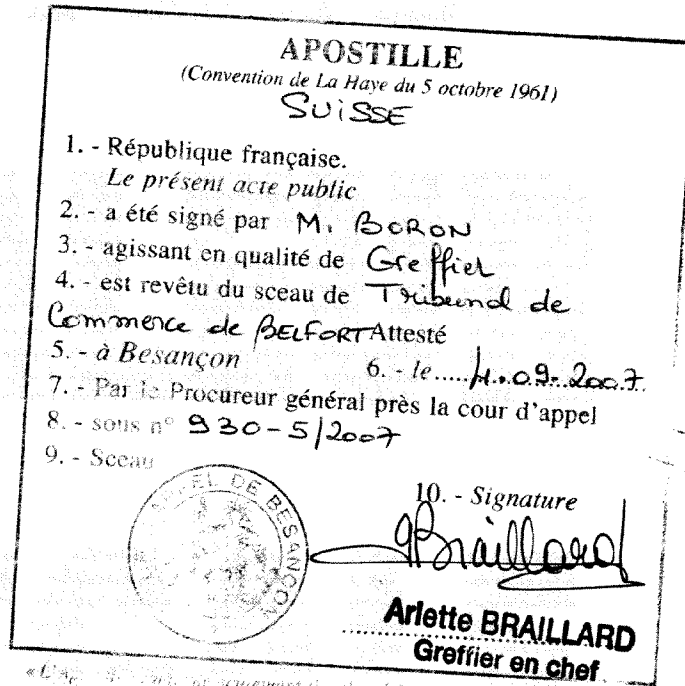 APOSTILLE
(Convention de La Haye du 5 octobre 1961)
SUiSSE
1. - République française.
Le présent acte public
2. - a été signé par M. BORON
3. - agissant en qualité de Greffier
4. - est revêtu du sceau de Tribunal de
Commerce de BELFORT Attesté
5. - à Besançon 6. - le ..... 11.09.2007.
7. - Par le Procureur général près la cour d'appel
8. - sous n° 930-5/2007
9. - Sceau
APPEL DE BESANÇON
10. - Signature
Braillard
Arlette BRAILLARD
Greffier en chef